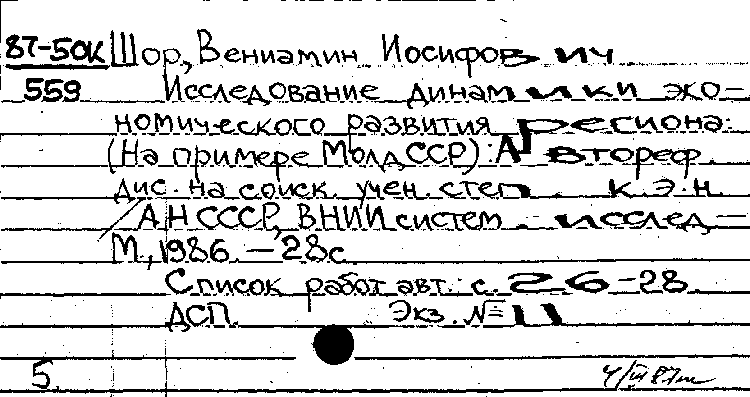 87-50К Шор, Вениамин Иосифович
559 Исследование динамики эко-
номического развития региона:
(На примере МолдССР): Автореф.
дис. на соиск. учен. степ. к.э.н.
/ АН СССР, ВНИИ систем. исслед. -
М., 1986. - 28 с.
Список работ авт.: с. 26-28.
ДСП. Экз. № 11
5.